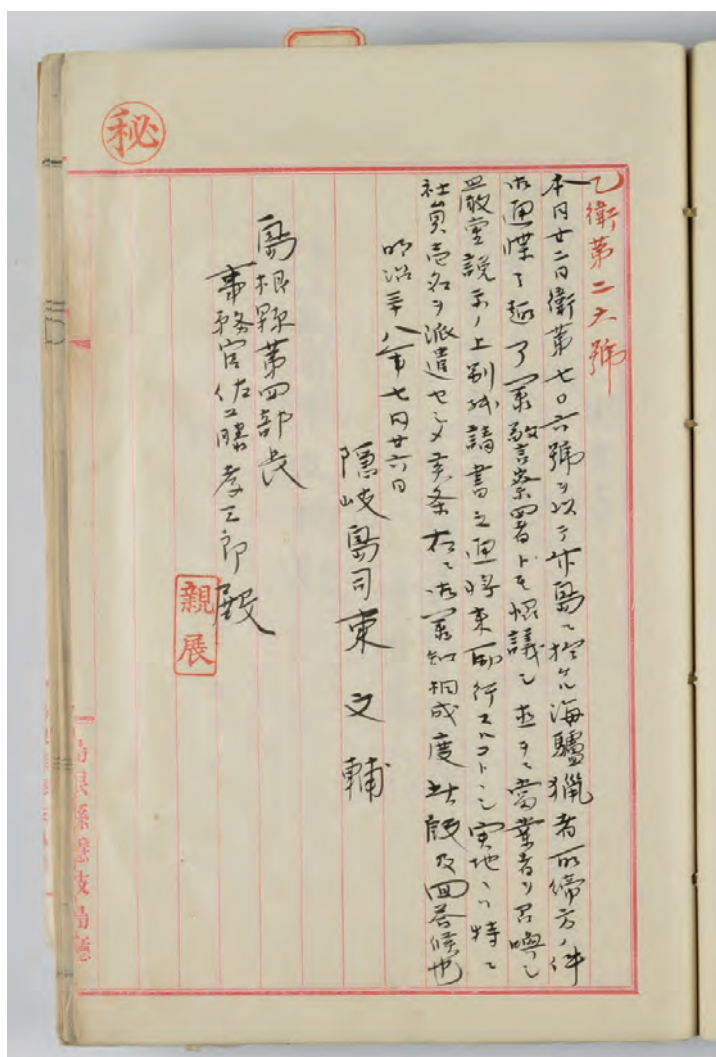 秘
乙衛第二六號
本月廿二日衛第七〇六號ヲ以テ竹島ニ於ケル海驢猟者取締方ノ件
御通牒ノ趣了承警察署トモ協議シ直ニ當業者ヲ召喚シ
嚴重説示ノ上別紙請書之通將来勵行スルコトニシ実地ヘハ特ニ
社員壱名ヲ派遣セシメ候条右ニ御承知相成度此段及回答候也
明治三十八年七月廿六日
隠岐島司東文輔
島根縣第四部長
事務官佐藤孝三郎殿
親展
島根縣隠岐島廳